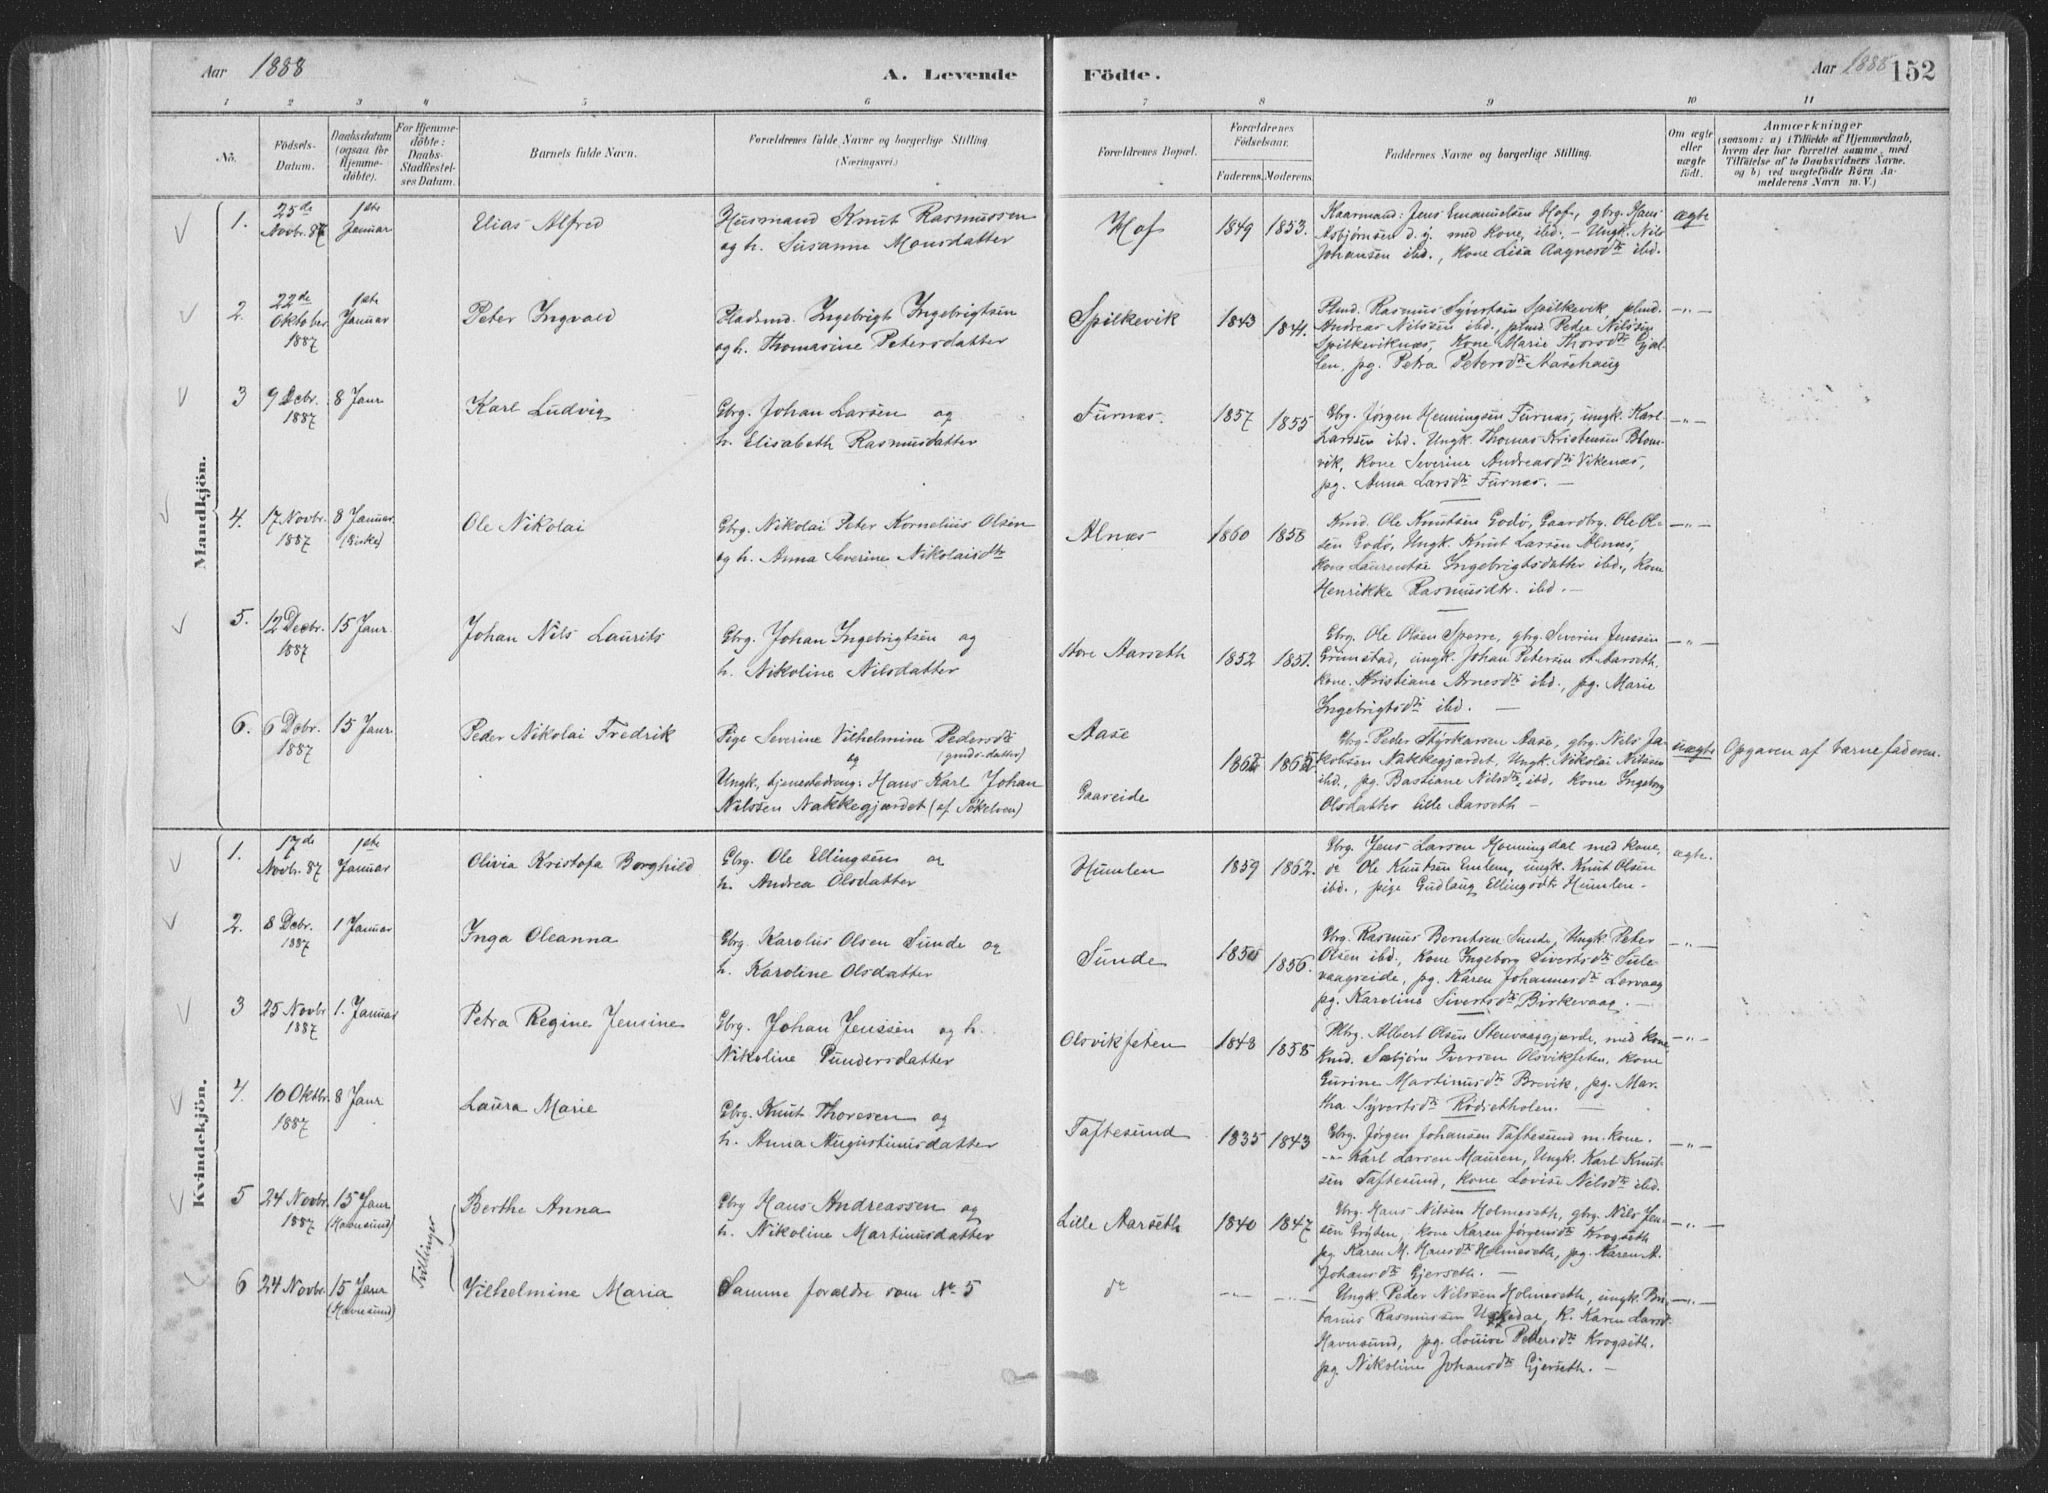 Aar 1888
A. Levende
Födte.
Aar 1888
152
1 2 3 4 5 6 7 8 9 10 11
No.
Födsels-
Datum.
Daabsdatum
(ogsaa for
Hjemme-
döbte).
For Hjemme-
döbte:
Daabs-
Stadfæstel-
ses Datum.
Barnets fulde Navn.
Forældrenes fulde Navne og borgerlige Stilling
(Næringsvei.)
Forældrenes Bopæl.
Forældrenes
Födselsaar.
Faderens. Moderens.
Faddernes Navne og borgerlige Stilling.
Om ægte
eller
uægte
födt.
Anmærkninger
(saasom: a) i Tilfælde af Hjemmedaab,
hvem der har forrettet samme, med
Tilföielse af to Daabsvidners Navne.
og b) ved uægtefödte Börn An-
melderens Navn m. V.)
Mandkjön.
1.
25de
Novbr. 87
1ste
Januar
Elias Alfred
Husmand Knut Rasmussen
og h. Susanne Monsdatter
Hof
1849 1853.
Kaarmand: Jens Emanuelsen Hof, gbrg. Hans
Asbjørnsen d. y. med kone, ibd., - Ungk. Nils
Johansen ibd., kone Lisa Aagnesdtr ibd.
ægte
2.
22de
Oktober
1887
1ste
Januar
Peter Ingvald
Pladsmd. Ingebrigt Ingebrigtsen
og h. Thomasine Petersdatter
Spilkevik
1843 1841.
Plmd. Rasmus Syvertsen Spilkevik plmd.
Andreas Nilssen ibd., plmd. Peter Nilssen
Spilkeviknæs, Kone Marie Thorsdtr
len, pg. Petra Petersdtr Aasehaug
-"-
3
9 Debr.
1887
8 Janr
Karl Ludvig
Gbrg. Johan Larsen og
h. Elisabeth Rasmusdatter
Furnæs.
1857 1855
Gbrg. Jørgen Henningsen Furnæs, ungk. Karl
Larssen ibd. Ungk. Thomas Kristensen Blom-
vik, kone Severine Andreasdtr Vikenæs,
pg. Anna Larsdtr Furnæs. -
-"-
4.
17 Novbr.
1887
8 Januar
(Giske)
Ole Nikolai
Gbrg. Nikolai Peter Kornelius Olsen
og h. Anna Severine Nikolaisdtr
Alnæs
1860 1858
Kmd. Ole Knutsen Godø, Gaardbrg. Ole Ol-
sen Godø, Ungk. Knut Larsen Alnæs,
kone Laurentse Ingebrigtsdatter ibd., Kone
Henrikke Rasmusdtr. ibd. -
-"-
5.
12 Decbr.
1887
15 Janr.
Johan Nils Laurits
Gbrg. Johan Ingebrigtsen og
h. Nikoline Nilsdatter
Store Aarseth
1852 1851.
Gbrg. Ole Olsen Sperre, gbrg. Severin Jenssen
Grimstad, ungk. Johan Petersen St. Aarseth.
kone. Kristiane Arnesdtr ibd., pg. Marie
Ingebrigtsdtr ibd. -
-"-
6.
6 Debr.
1887
15 Janr.
Peder Nikolai Fredrik
Pige Severine Vilhelmine Pedersdtr
(grdb. datter)
og
Ungk., tjenestedreng: Hans Karl Johan
Nilssen Nakkegjærdet (af Søkelven)
Aase
Gaareide
1862 1865
Gbrg. Peder Styrkarsen Aase, gbrg. Nils Ja-
kobsen Nakkegjærdet, Ungk. Nikolai Nilssen
ibd., pg. Bastiane Nilsdtr ibd, kone Ingeborg
Olsdatter Lille Aarseth -
uægte
Opgaven af barnefaderen.
Kvindekjön.
1.
17de
Novbr. 87
1ste
Januar
Olivia Kristofa Borghild
Gbrg. Ole Ellingsen og
h. Andrea Olsdatter
Humlen
1859 1862.
Gbrg. Jens Larsen Honningdal med kone,
do Ole Knutsen Emlem, ungk. Knut Olsen
ibd., pige Gudlaug Ellingsdtr Humlen -
ægte.
2.
8 Debr.
1887
1 Januar
Inga Oleanna
Gbrg. Karolus Olsen Sunde og
h. Karoline Olsdatter
Sunde
1850 1856.
Gbrg. Rasmus Berntsen Sunde, Ungk. Peter
Olsen ibd., kone Ingeborg Sivertsdtr Sule-
vaagreide, pg. Karen Johannesdtr Lervaag
pg. Karoline Sivertsdtr Birkevaag. -
-"-
3
25 Novbr
1887
1. Januar
Petra Regine Jensine
Gbrg. Johan Jenssen og h.
Nikoline Pundersdatter
Olsvikfeten
1848 1858
Gbrg. Albert Olsen Stenvaaggjerde, med kone,
kmd. Sæbjørn Iversen Olsvikfeten, kone
Gurine Martinusdtr Brevik, pg. Mar-
tha Syvertsdtr Rødsetholen. -
-"-
4.
10 Oktbr.
1887
8 Janr
Laura Marie
Gbrg. Knut Thoresen og
h. Anna Augustinusdatter
Taftesund
1835 1843
Gbrg. Jørgen Johansen Taftesund m. kone.
-"- Karl Larsen Mauren, Ungk. Karl Knut-
sen Taftesund, kone Lovise Nilsdtr ibd.
-"-
5
24 Novbr.
1887
15 Janr
(Havnsund)
Tvillinger
Berthe Anna
Gbrg Hans Andreassen og
h. Nikoline Martinusdatter
Lille Aarseth
1840 1847
Gbrg. Hans Nilsen Holmeseth, gbrg. Nils Jen-
sen Gryten, kone Karen Jørgensdtr Krogseth
pg. Karen M. Hansdtr Holmeseth, pg. Karen A.
Johansdtr Gjerseth. -
-"-
6
24 Novbr.
15 Janr
(Havnsund)
Vilhelmine Maria
Samme forældre som No 5
do
-"- -"-
Ungk. Peder Nilssen Holmeseth, ungk.
Rasmussen Uskedal, K. Karen Larsd.
Havnsund, pg. Louise Petersdtr Krogseth.
pg. Nikoline Johansdtr Gjerseth. -
-"-